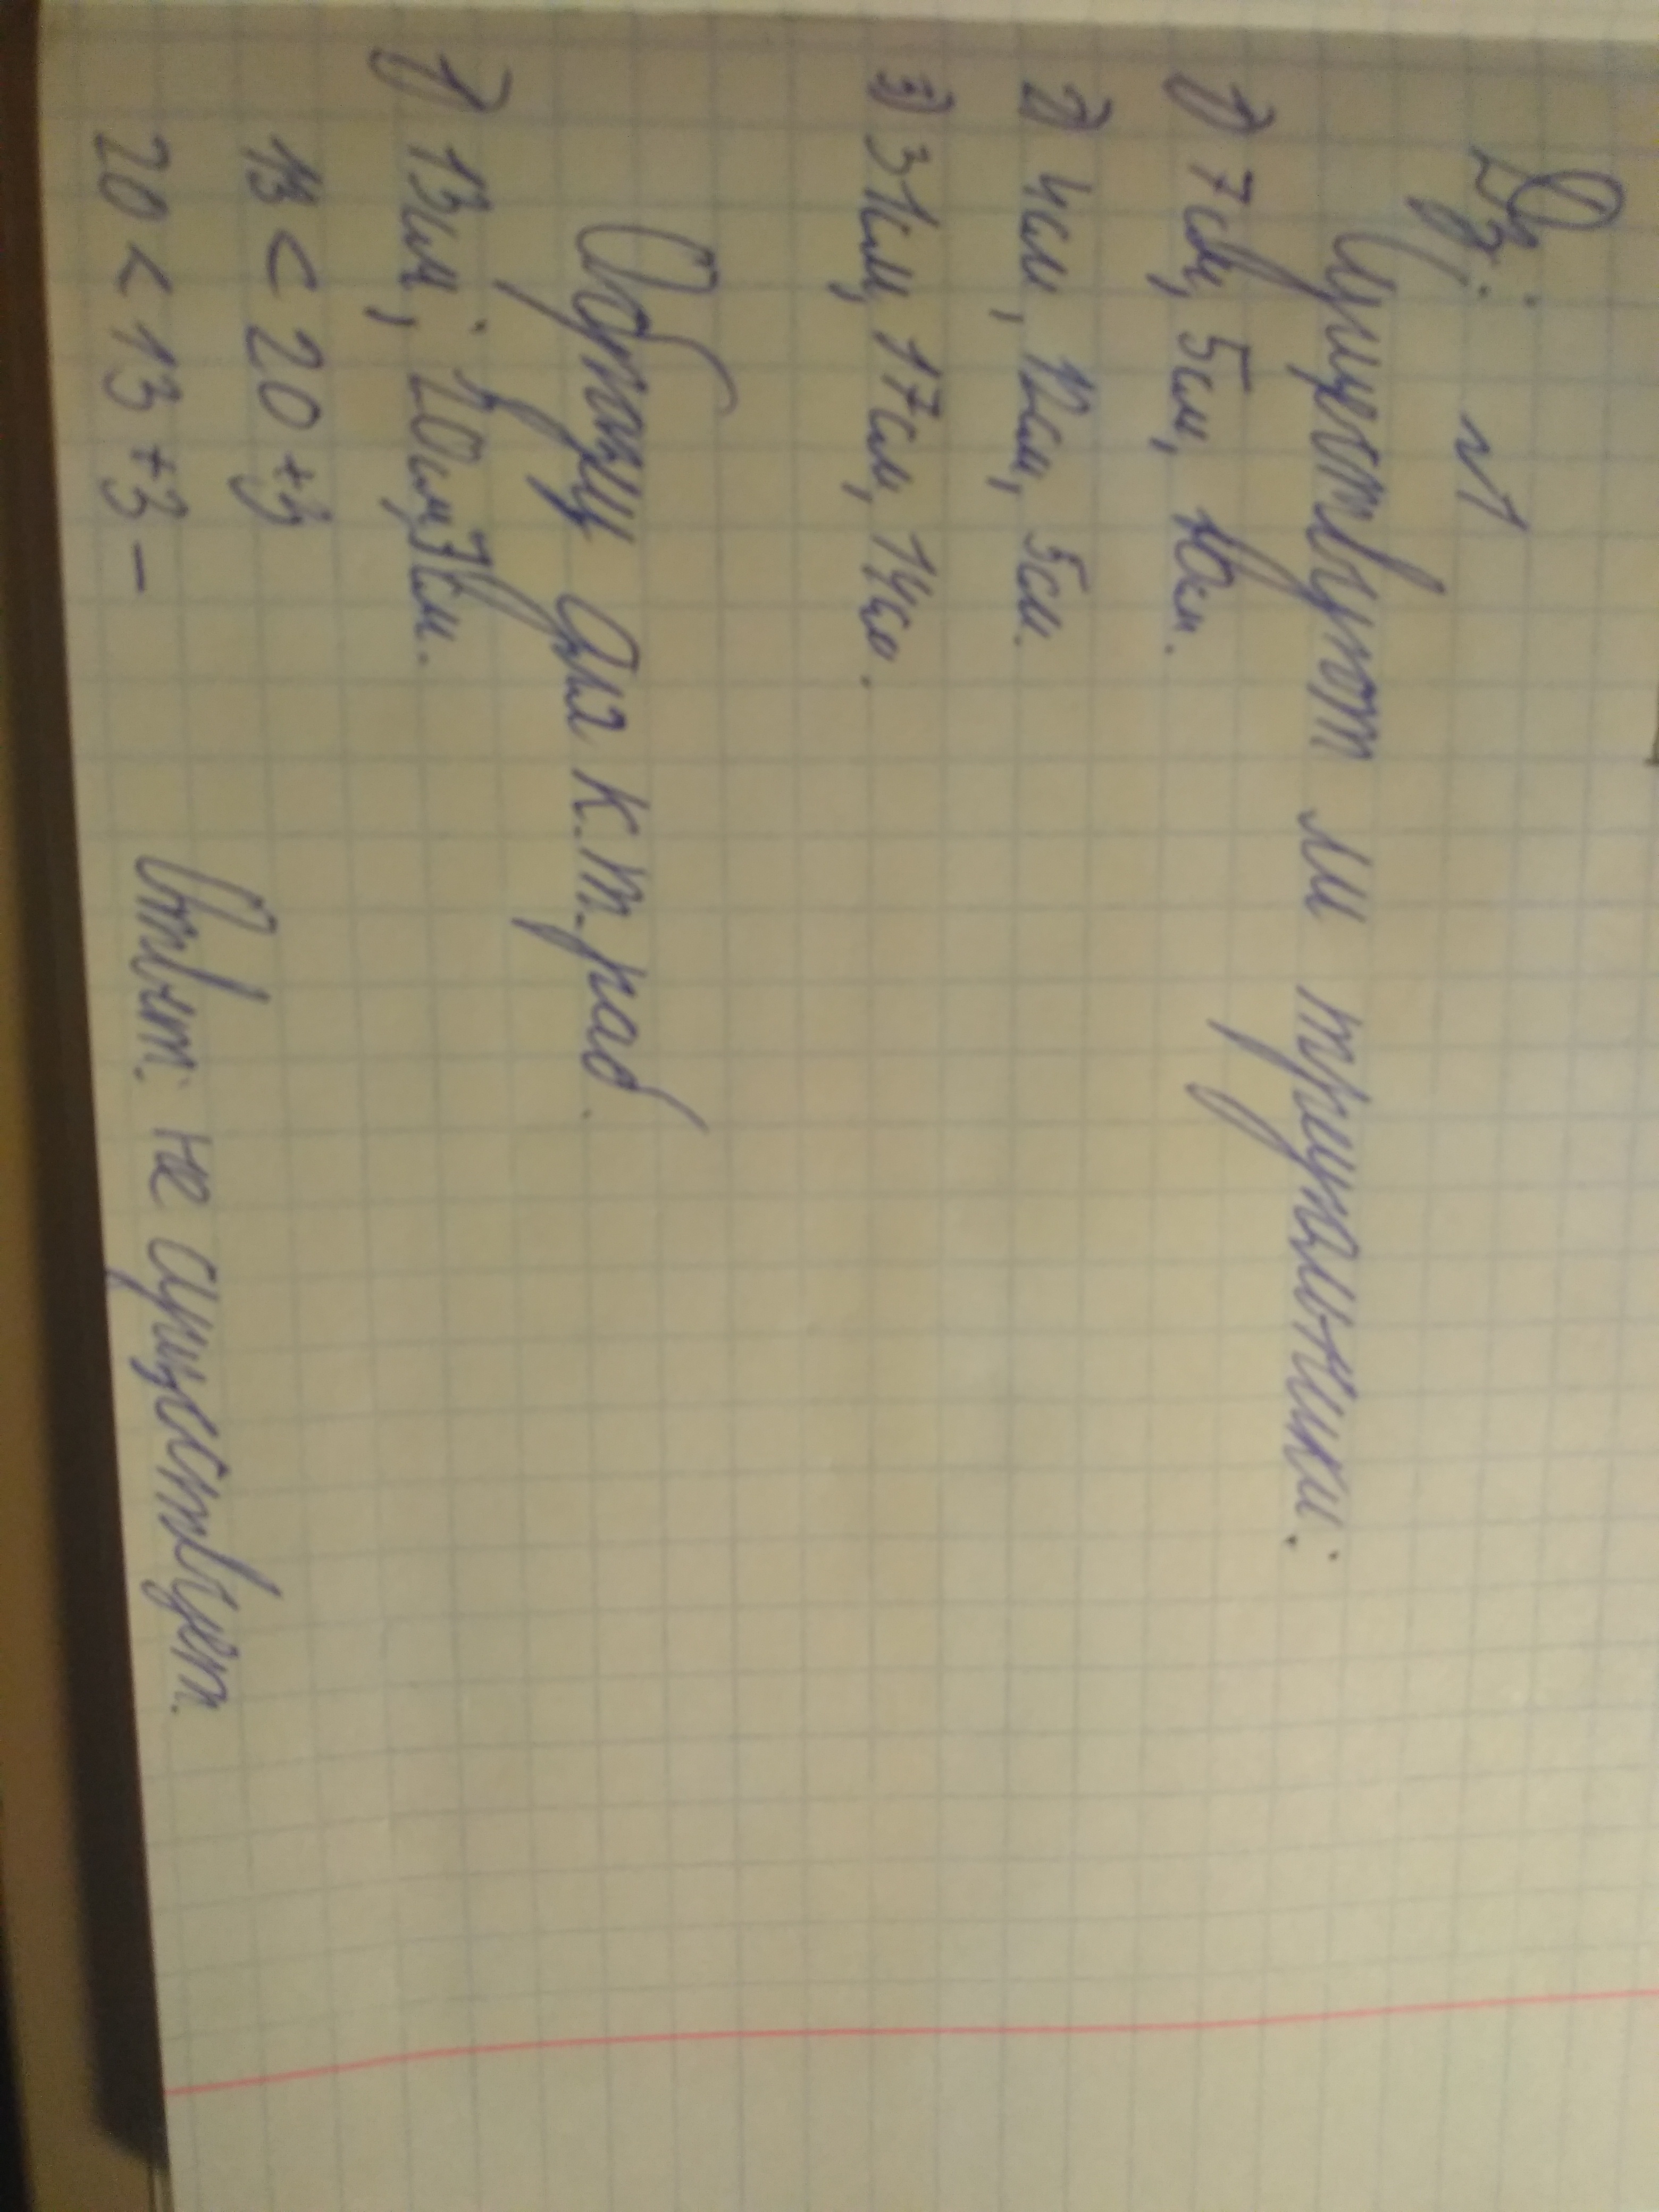 Дз: №1
Существуют ли треугольники:
1) 7см, 5см, 10см.
2) 4см, 12см, 5см.
3) 31см, 17см, 14см.
Образец для к.т. раб.
1) 13см; 20см, 3см.
13 < 20 + 3
20 < 13 + 3 –
Ответ: не существует.